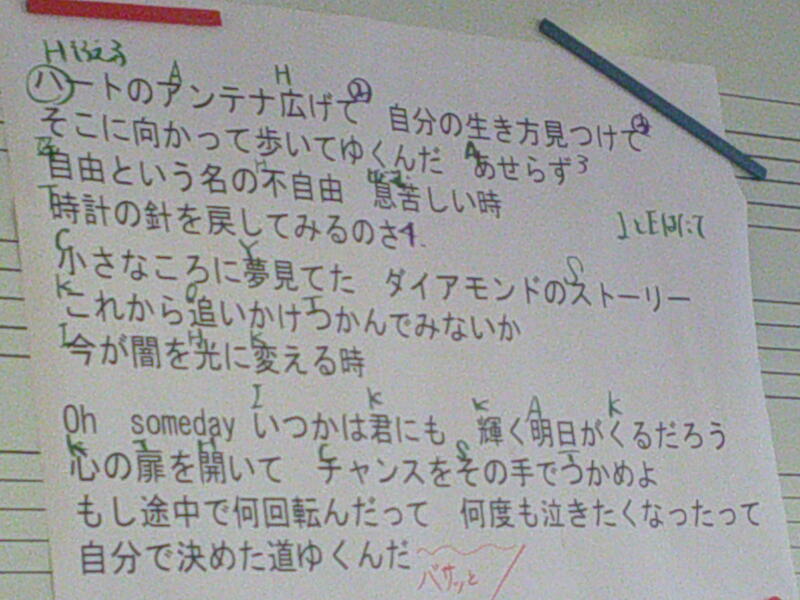 ハートのアンテナ広げて　自分の生き方見つけて
そこに向かって歩いてゆくんだ　あせらず
自由という名の不自由　息苦しい時
時計の針を戻してみるのさ
小さなころに夢見てた　ダイアモンドのストーリー
これから追いかけつかんでみないか
今が闇を光に変える時
Oh　someday いつかは君にも　輝く明日がくるだろう
心の扉を開いて　チャンスをその手でつかめよ
もし途中で何回転んだって　何度も泣きたくなったって
自分で決めた道ゆくんだ
パサッと